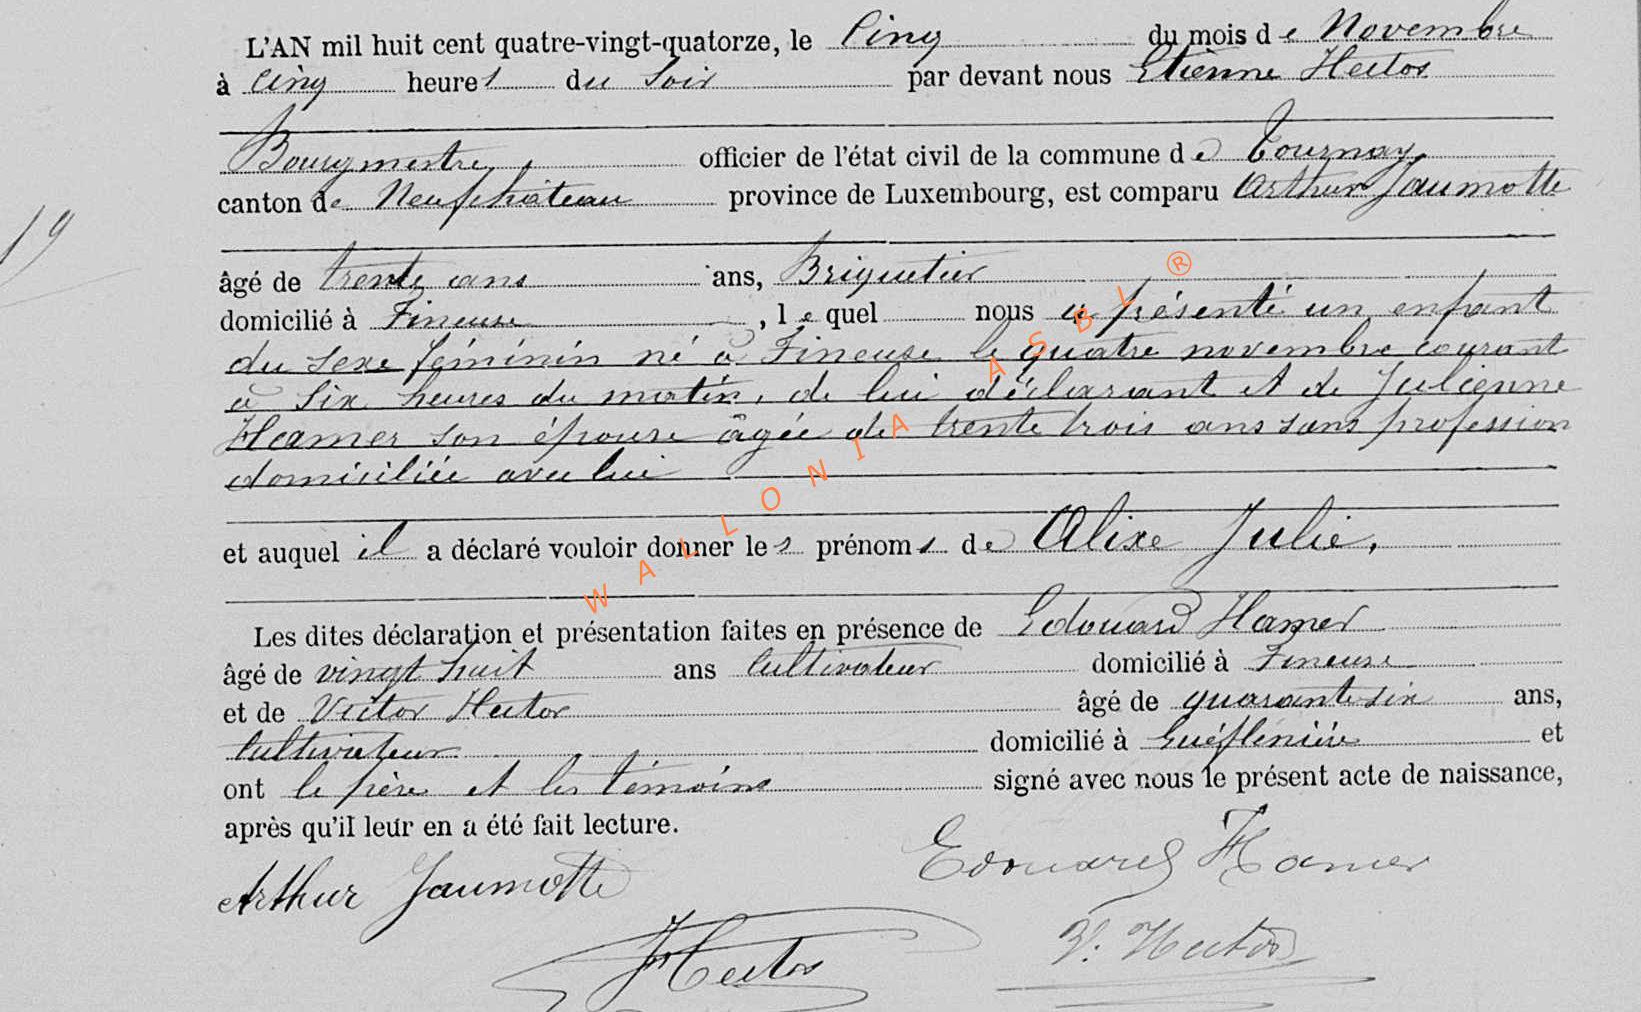 L'AN mil huit cent quatre-vingt-quatorze, le Cinq du mois de Novembre
à cinq heures du soir par devant nous Etienne Hector
Bourgmestre officier de l'état civil de la commune de Tournay
canton de Neufchâteau province de Luxembourg, est comparu Arthur Jaumotte
19
âgé de trente ans ans, Briquetier
domicilié à Fineuse, lequel nous a présenté un enfant
du sexe féminin né à Fineuse le quatre novembre courant
à six heures du matin, de lui déclarant et de Julienne
Hamer son épouse âgée de trente trois ans sans profession
domiciliée avec lui
et auquel il a déclaré vouloir donner les prénoms de Alixe Julie.
Les dites déclaration et présentation faites en présence de Edouard Hamer
âgé de vingt huit ans Cultivateur domicilié à Fineuse
et de Victor Hector âgé de quarante six ans,
Cultivateur domicilié à et
ont le père et les témoins signé avec nous le présent acte de naissance,
après qu'il leur en a été fait lecture.
Arthur Jaumotte Edouard Hamer
Hector V. Hector
WALLONIA ASBL ®